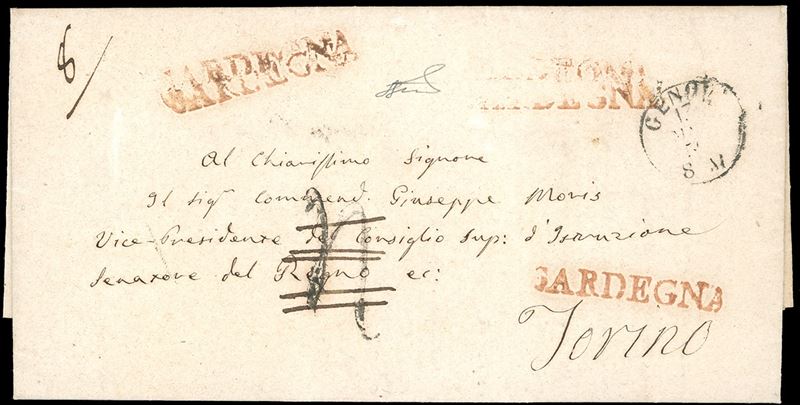 8/
SARDEGNA
SARDEGNA
SARDEGNA
SARDEGNA
GENOVA
17
8 M
Al Chiarissimo Signore
Il Sigr Commend. Giuseppe Moris
Vice-Presidente del Consiglio Sup: d'Istruzione
Senatore del Regno ec:
SARDEGNA
Torino